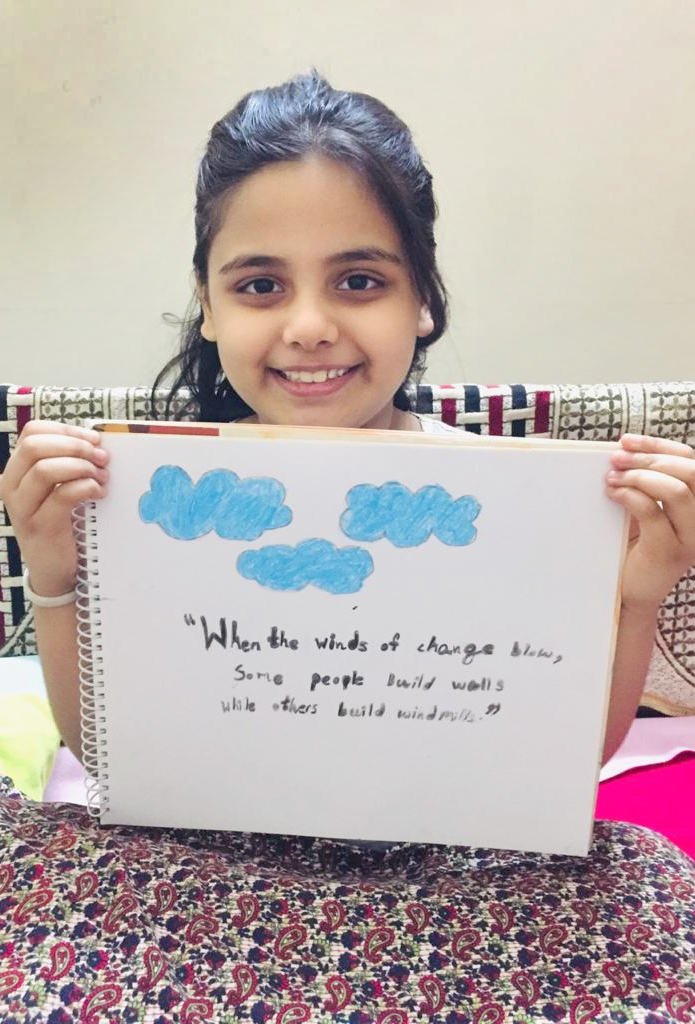 "When the winds of change blow,
Some people build walls
while others build windmills."